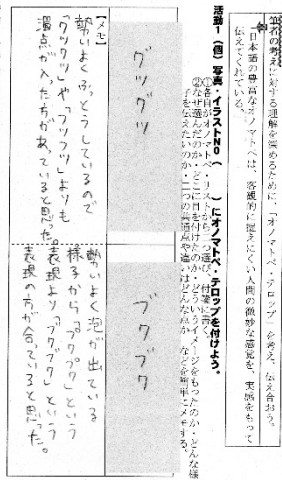 筆者の考えに対する理解を深めるために、「オノマトペ・テロップ」を考え、伝え合おう。
日本語の豊富なオノマトペは、客観的に捉えにくい人間の微妙な感覚を、実感をもって
伝えてくれている。
活動1（個）写真・イラストNO（　　）にオノマトペ・テロップを付けよう。
①各自がオノマトペ・リストから二つ選び、付箋に書く。
②なぜ選んだのか・どこに目を付けたのか・どういうイメージをもったのか・どんな様
子を伝えたいのか・二つの共通点や違いはどんな点か　などを簡単にメモする。
グツグツ
ブクブク
【メモ】
勢いよくふっとうしているので
「クツクツ」や「フツフツ」よりも
濁点が入った方があっていると思った。
勢いよく泡が出ている
様子から、「プクプク」という
表現より「ブクブク」という
表現の方が合っていると思った。